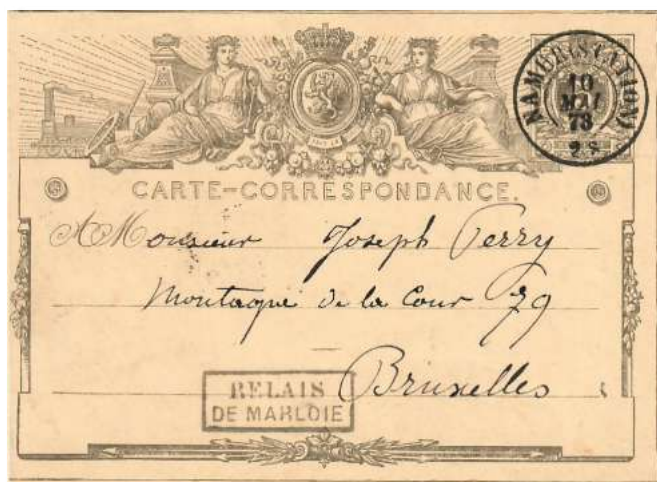 NAMUR (STATION)
10
MAI
73
CARTE-CORRESPONDANCE.
A Monsieur Joseph Perry
Montagne de la Cour 79
Bruxelles
RELAIS
DE MARLOIE